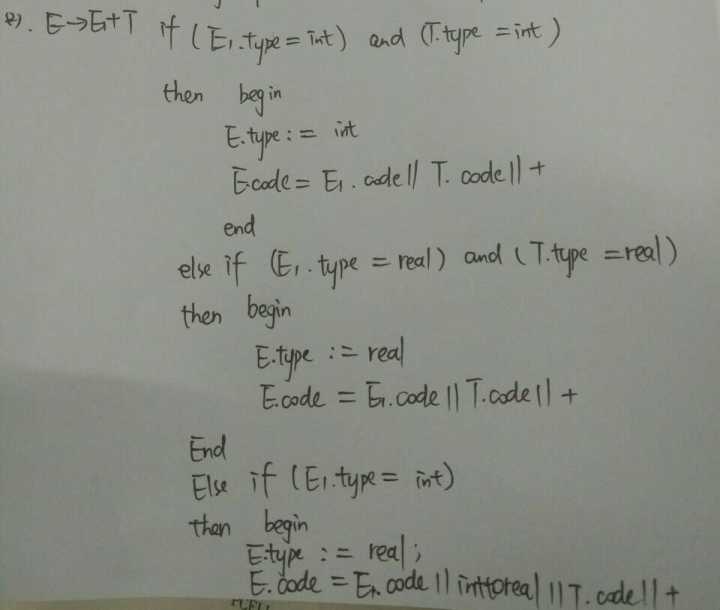 2). E→E₁+T if (E₁.type = int) and (T.type = int)
then begin
E.type := int
E.code = E₁.code || T.code || +
end
else if (E₁.type = real) and (T.type = real)
then begin
E.type := real
E.code = E₁.code || T.code || +
End
Else if (E₁.type = int)
then begin
E.type := real;
E.code = E₁.code || inttoreal || T.code || +